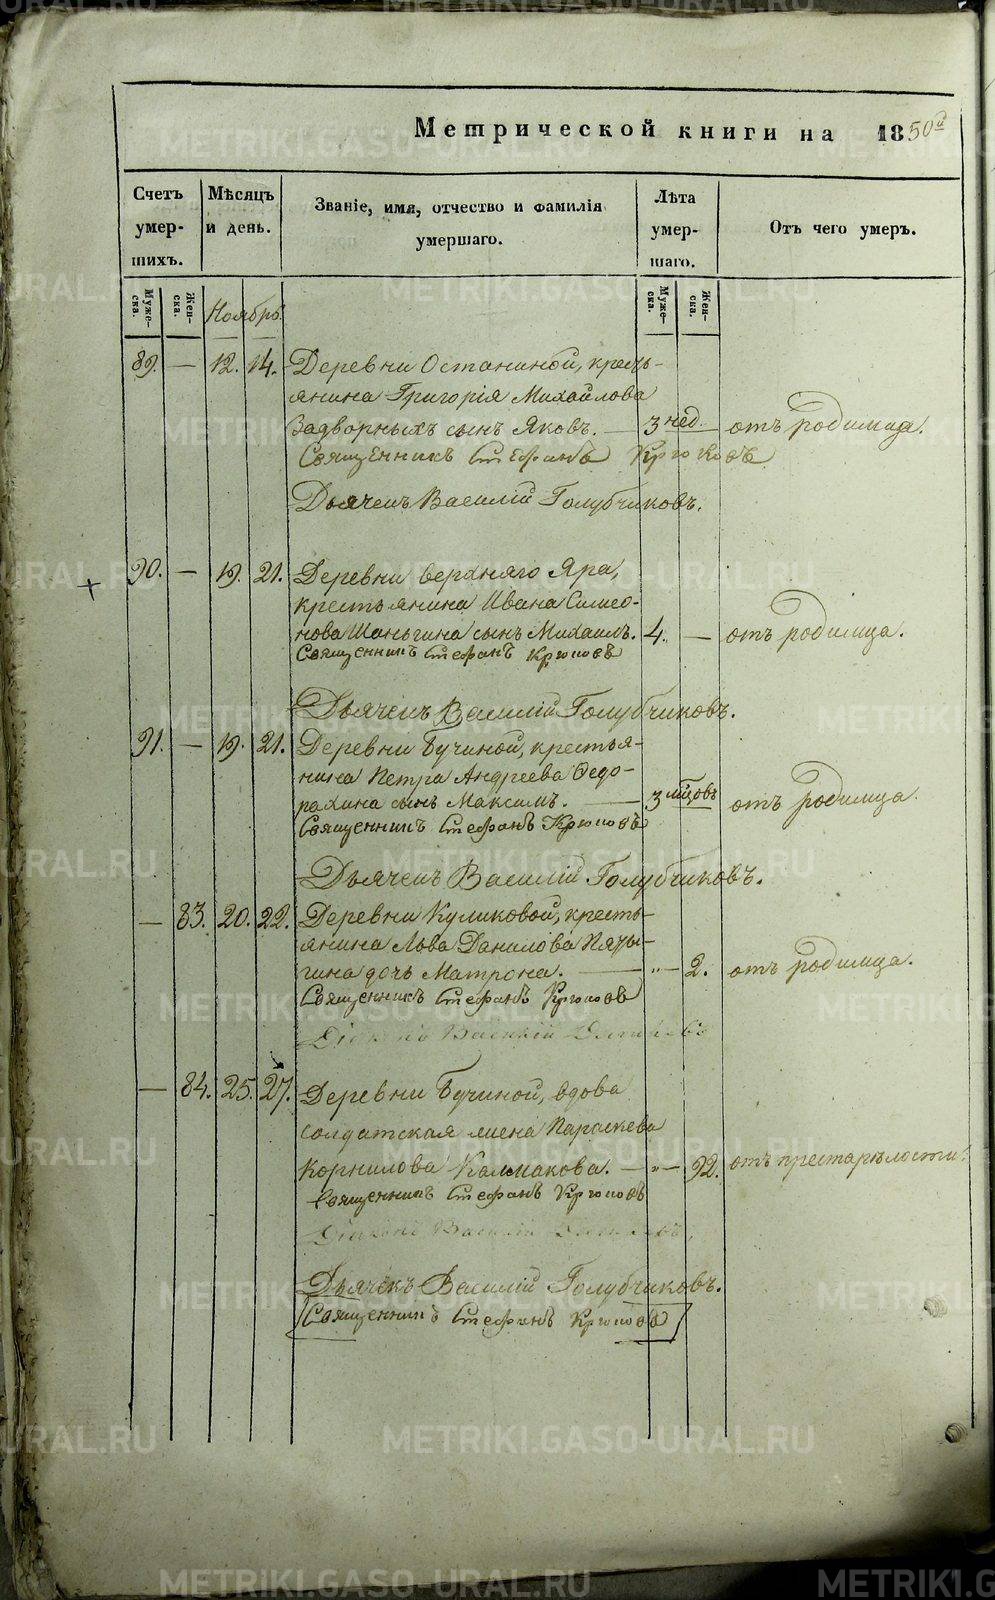 Метрической книги на 1850й
Счетъ умер-шихъ.
Мѣсяцъ и день.
Званіе, имя, отчество и фамилія умершаго.
Лѣта умер-шаго.
Отъ чего умеръ.
Муже-ска. Жен-ска. Ноябрь Муже-ска. Жен-ска.
89. — 12. 14. Деревни Останиной, кресть-
янина Григорія Михайлова
Задворныхъ сынъ Яковъ. — 3 нед. — отъ родимца.
Священникъ Стефанъ Крюковъ
Дьячекъ Василій Голубчиковъ.
90. — 19. 21. Деревни верхняго Яра,
крестьянина Ивана Симео-
нова Шаньгина сынъ Михаилъ. 4. — отъ родимца.
Священникъ Стефанъ Крюковъ
Дьячекъ Василій Голубчиковъ.
91. — 19. 21. Деревни Бучиной, крестья-
нина Петра Андреева Федо-
рахина сынъ Максимъ. — 3 мцовъ отъ родимца.
Священникъ Стефанъ Крюковъ
Дьячекъ Василій Голубчиковъ.
— 83. 20. 22. Деревни Куликовой, кресть-
янина Льва Данилова Пязы-
гина дочь Матрона. — „ — 2. отъ родимца.
Священникъ Стефанъ Крюковъ
Діаконъ Василій
— 84. 25. 27. Деревни Бучиной, вдова
солдатская жена Параскева
Корнилова Калмакова. — „ — 92. отъ престарѣлости.
Священникъ Стефанъ Крюковъ
Діаконъ Василій
Дьячекъ Василій Голубчиковъ.
Священникъ Стефанъ Крюковъ
METRIKI.GASO-URAL.RU